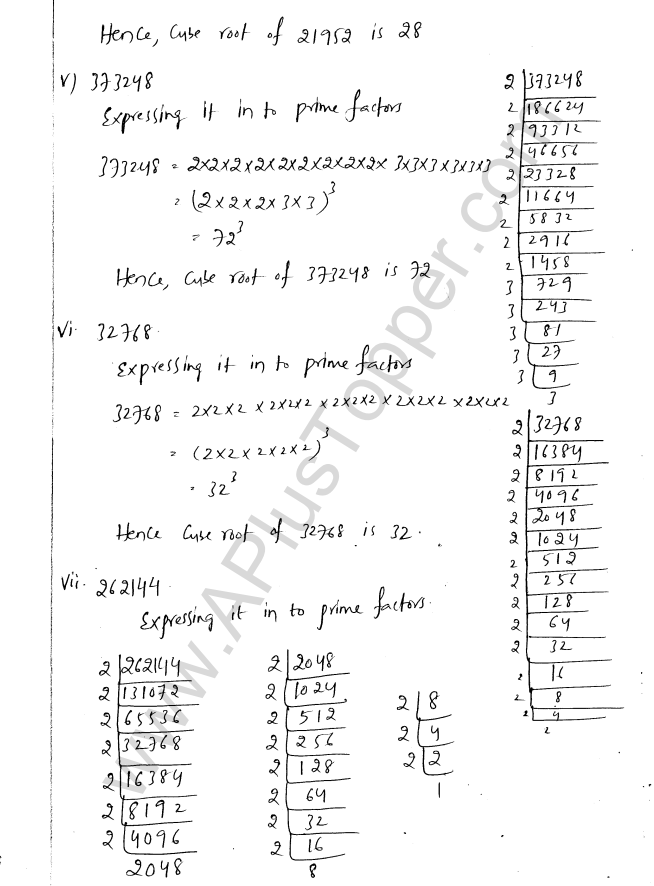 Hence, Cube root of 21952 is 28
v) 373248
Expressing it in to prime factors
373248 = 2×2×2×2×2×2×2×2×2× 3×3×3×3×3×3
= (2×2×2×3×3)³
= 72³
Hence, Cube root of 373248 is 72
2 373248
2 186624
2 93312
2 46656
2 23328
2 11664
2 5832
2 2916
2 1458
3 729
3 243
3 81
3 27
3 9
3
Vi. 32768.
Expressing it in to prime factors
32768 = 2×2×2 × 2×2×2 × 2×2×2 × 2×2×2 × 2×2×2
= (2×2×2×2×2)³
= 32³
Hence Cube root of 32768 is 32.
2 32768
2 16384
2 8192
2 4096
2 2048
2 1024
2 512
2 256
2 128
2 64
2 32
2 16
2 8
2 4
2
Vii. 262144.
Expressing it in to prime factors.
2 262144
2 131072
2 65536
2 32768
2 16384
2 8192
2 4096
2048
2 2048
2 1024
2 512
2 256
2 128
2 64
2 32
2 16
8
2 8
2 4
2 2
1
www.APlusTopper.com